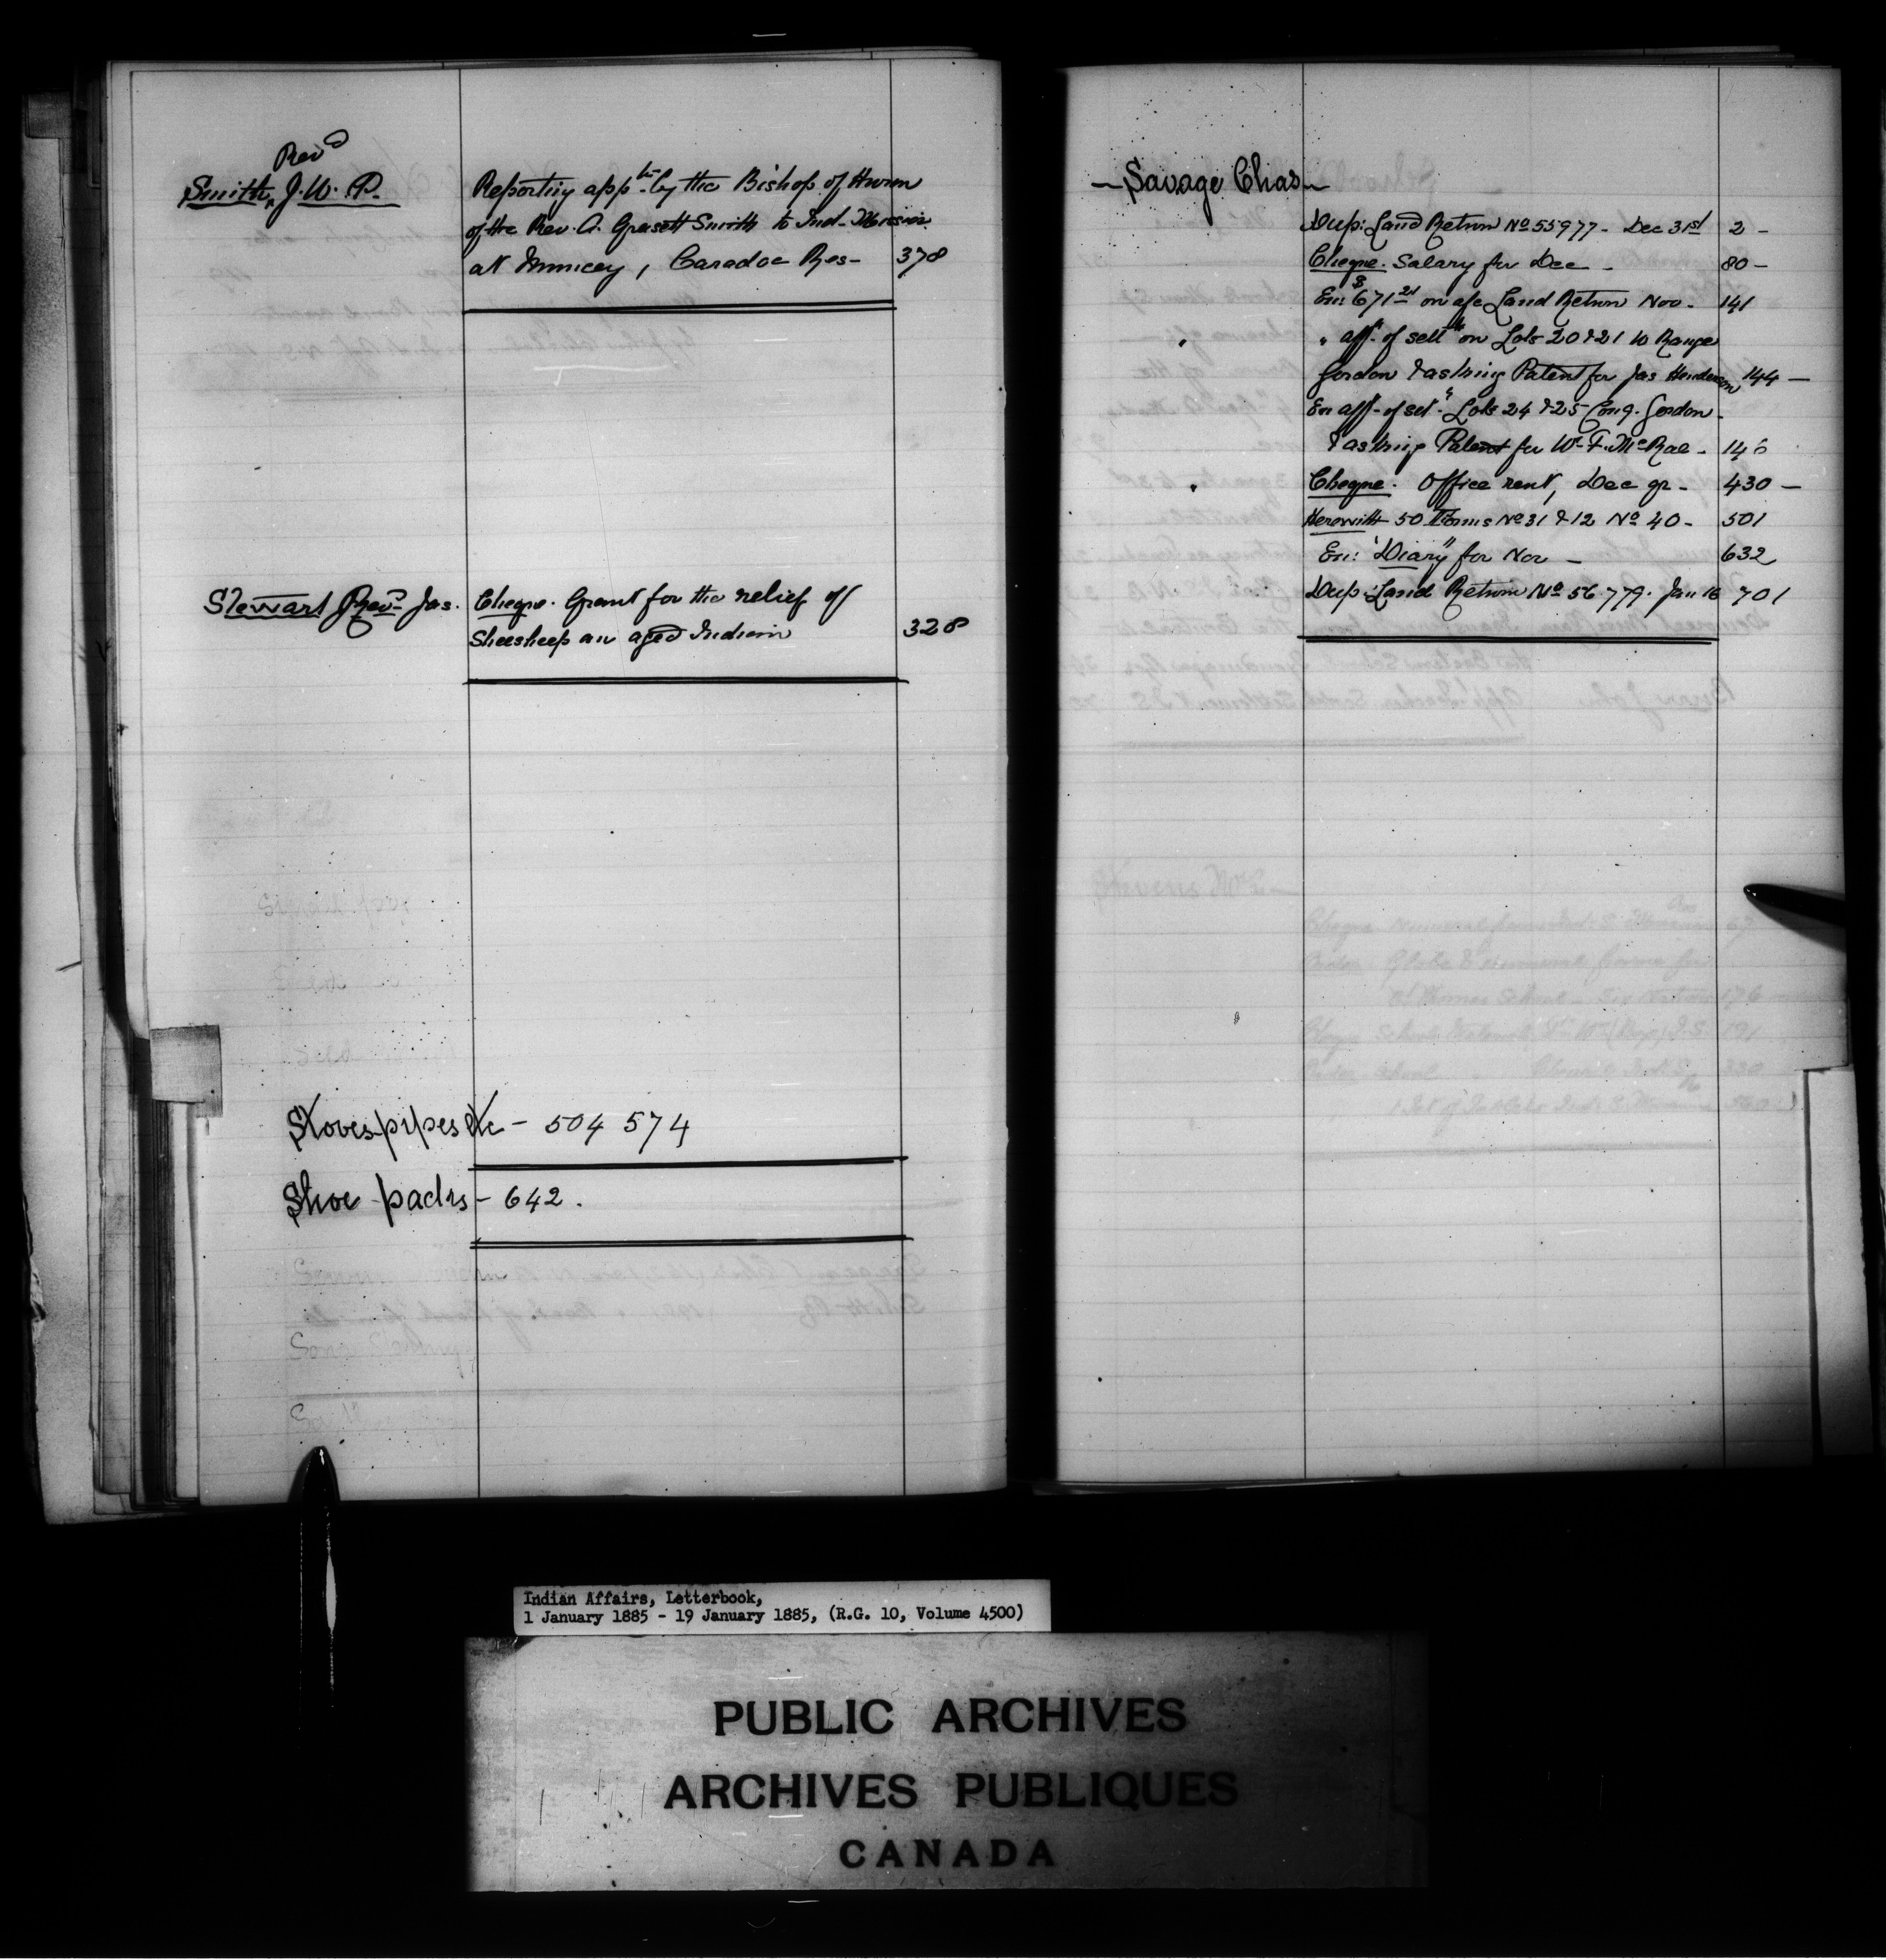 Revd
Smith, J. W. P.
Reporting appte by the Bishop of Huron
of the Rev. A. Grasett Smith to Ind. Mission
at Muncey, Caradoc Res - 378
Stewart Revd Jas.
Cheque. Grant for the relief of
Sheesheep an aged Indian 328
Stoves pipes etc - 504 574
Shoe packs - 642.
Savage Chas
Dup: Land Return No 55977 - Dec 31st 2 -
Cheque. Salary for Dec - 80 -
En: $671 21 on a/c Land Return Nov - 141
" aff. of settt on Lots 20 & 21 10 Range
Gordon & asking Patent for Jas Henderson 144 -
En aff. of set. Lots 24 & 25 Con 9. Gordon -
& asking Patent for W. F. McRae - 146
Cheque. Office rent, Dec qr - 430 -
Herewith 50 Forms No 31 & 12 No 40 - 501
En: "Diary" for Nov - 632
Dup: Land Return No 56779. Jan 16 701
Stevens
Indian Affairs, Letterbook,
1 January 1885 - 19 January 1885, (R.G. 10, Volume 4500)
PUBLIC ARCHIVES
ARCHIVES PUBLIQUES
CANADA